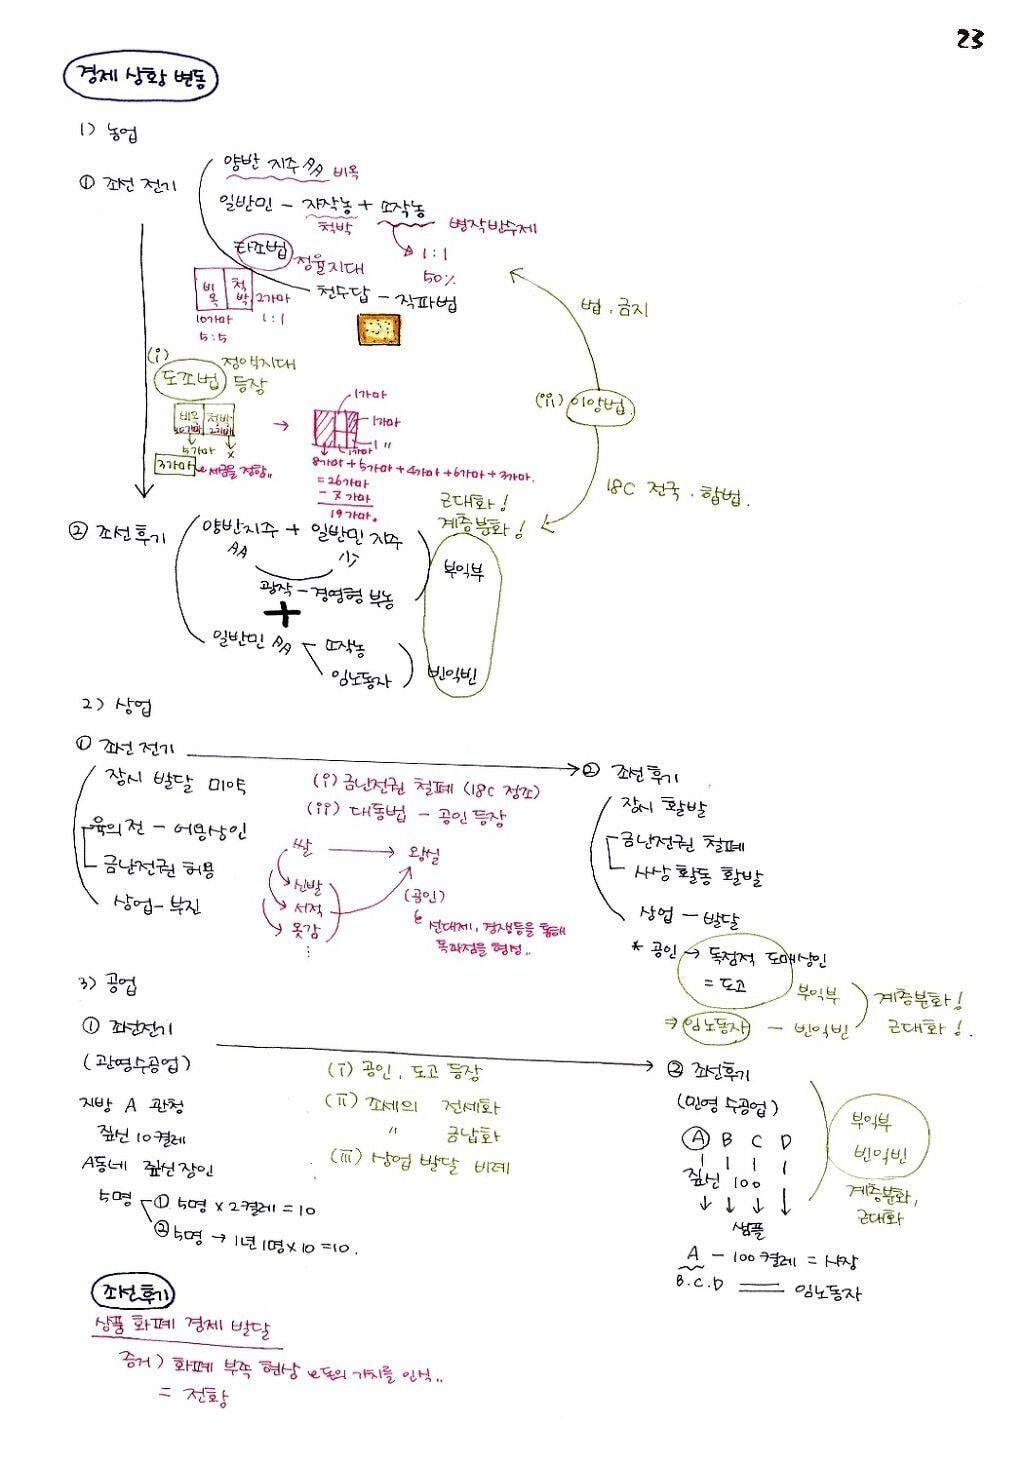 23
경제 상황 변동
1) 농업
① 조선 전기
양반 지주 AA 비옥
일반민 - 자작농 + 소작농
척박
병작반수제
1:1
50%
타조법
정율지대
천수답 - 직파법
비옥 척박
2가마
10가마 1:1
5:5
법. 금지
(i) 정액지대
도조법 등장
비옥 척박
10가마 2가마
5가마 x
3가마
세금을 정함..
1가마
1가마
1 "
1가마
8가마+5가마+4가마+6가마+3가마.
=26가마
- 7가마
19가마.
(iii) 이앙법
18C 전국. 합법.
근대화!
계층분화!
② 조선후기
양반지주 + 일반민 지주
AA 小
광작 - 경영형 부농
부익부
+
일반민 AA
소작농
임노동자
빈익빈
2) 상업
① 조선 전기
장시 발달 미약
육의전 - 어용상인
금난전권 허용
상업 - 부진
(i) 금난전권 철폐 (18C 정조)
(ii) 대동법 - 공인 등장
쌀 → 왕실
신발
서적
옷감
⋮
(공인)
선대제, 경쟁등을 통해
독과점을 형성..
② 조선후기
장시 활발
금난전권 철폐
사상 활동 활발
상업 - 발달
* 공인 → 독점적 도매상인
= 도고
부익부
⇒ 임노동자 - 빈익빈
계층분화!
근대화!
3) 공업
① 조선전기
(관영수공업)
지방 A 관청
짚신 10켤레
A동네 짚신장인
5명
① 5명 x 2켤레 = 10
② 5명 → 1년 1명 x 10 = 10.
(i) 공인, 도고 등장
(ii) 조세의 전세화
" 금납화
(iii) 상업 발달 비례
② 조선후기
(민영 수공업)
A B C D
짚신 100
샘플
A - 100켤레 = 사장
B.C.D
임노동자
부익부
빈익빈
계층분화,
근대화
조선후기
상품 화폐 경제 발달
증거) 화폐 부족 현상
돈의 가치를 인식..
= 전황